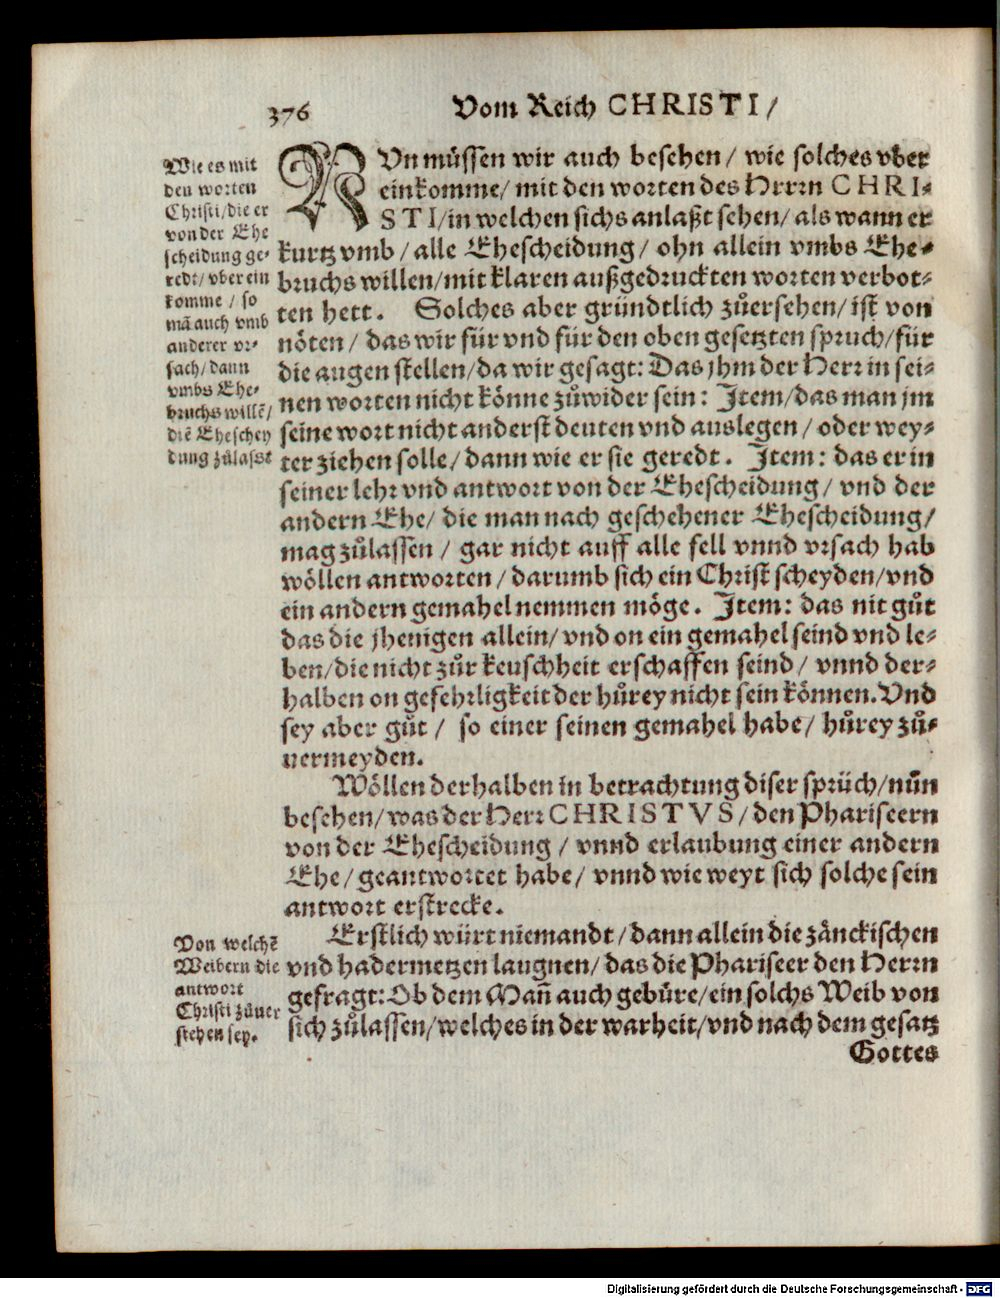 376 Vom Reich CHRISTI /
Wie es mit
den worten
Christi / die er
von der Ehe
scheidung ge⸗
redt / vber ein
komme / so
mā auch vmb
anderer vr⸗
sach / dann
vmbs Ehe⸗
bruchs willē /
diē Eheschey
dung zůlasst
NVn müssen wir auch besehen / wie solches vber
einkomme / mit den worten des Herrn CHRI⸗
STI / in welchen sichs anlaßt sehen / als wann er
kurtz vmb / alle Ehescheidung / ohn allein vmbs Ehe⸗
bruchs willen / mit klaren außgedruckten worten verbot⸗
ten hett. Solches aber gründtlich zůersehen / ist von
nöten / das wir für vnd für den oben gesetzten spruch / für
die augen stellen / da wir gesagt: Das jhm der Herr in sei⸗
nen worten nicht könne zůwider sein: Item / das man jm
seine wort nicht anderst deuten vnd auslegen / oder wey⸗
ter ziehen solle / dann wie er sie geredt. Item: das er in
seiner lehr vnd antwort von der Ehescheidung / vnd der
andern Ehe / die man nach geschehener Ehescheidung /
mag zůlassen / gar nicht auff alle fell vnnd vrsach hab
wöllen antworten / darumb sich ein Christ scheyden / vnd
ein andern gemahel nemmen möge. Item: das nit gůt
das die jhenigen allein / vnd on ein gemahel seind vnd le⸗
ben / die nicht zůr keuschheit erschaffen seind / vnnd der⸗
halben on gefehrligkeit der hůrey nicht sein können. Vnd
sey aber gůt / so einer seinen gemahel habe / hůrey zů⸗
uermeyden.
Wöllen derhalben in betrachtung diser sprüch / nūn
besehen / was der Herr CHRISTVS / den Phariseern
von der Ehescheidung / vnnd erlaubung einer andern
Ehe / geantwortet habe / vnnd wie weyt sich solche sein
antwort erstrecke.
Von welchē
Weibern die
antwort
Christi zůuer
stehen sey.
Erstlich würt niemandt / dann allein die zänckischen
vnd hadermetzen laugnen / das die Phariseer den Herrn
gefragt: Ob dem Mañ auch gebüre / ein solchs Weib von
sich zůlassen / welches in der warheit / vnd nach dem gesatz
Gottes
Digitalisierung gefördert durch die Deutsche Forschungsgemeinschaft - DFG